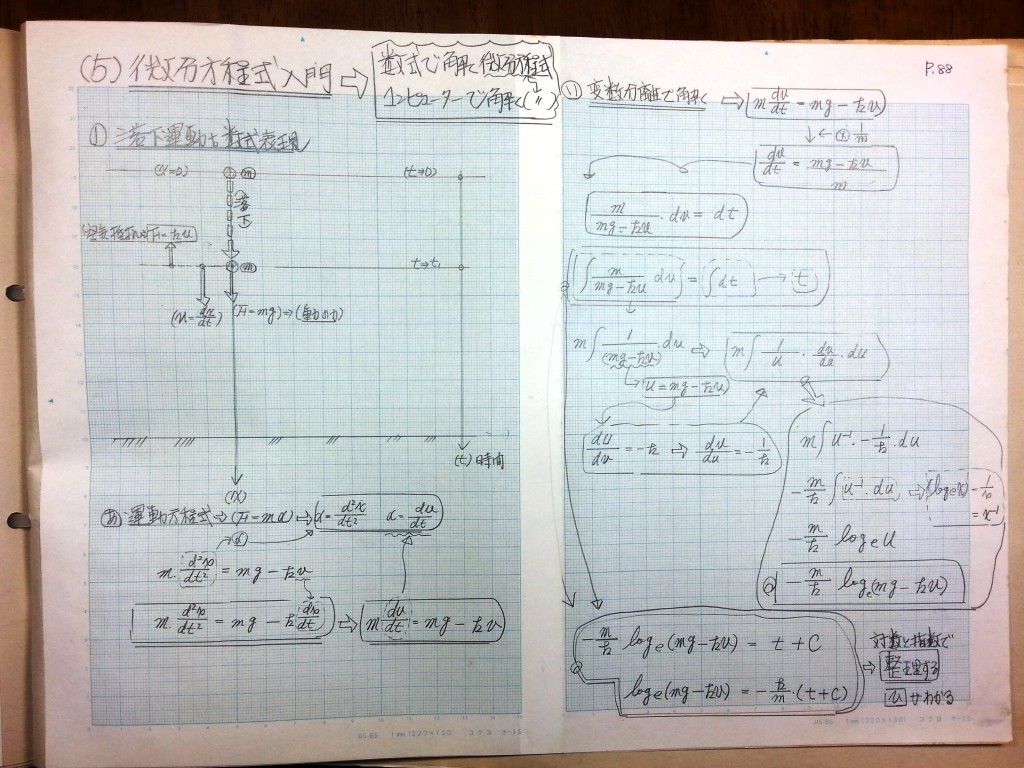 (5) 微分方程式入門 ⇨
数式で解く微分方程式
コンピューターで解く(〃)
① 落下運動を数式表現
(x=0) m (t=0)
落下
空気抵抗力F=kv
m t=t₁
(v=dx/dt) (F=mg)⇒(重力)
(t) 時間
(x)
あ 運動方程式⇒(F=mα)⇒ α=d²x/dt² α=dv/dt
m·d²x/dt² = mg-kv
m d²x/dt² = mg-k dx/dt ⇨ m dv/dt = mg-kv
P.88
(い) 変数分離で解く ⇨ m dv/dt = mg-kv
↓←ⓧ 1/m
dv/dt = mg-kv/m
m/mg-kv · dv = dt
∫ m/mg-kv dv = ∫dt → t
m∫ 1/(mg-kv) · dv ⇨ m∫ 1/u · dv/du · du
u=mg-kv
du/dv = -k ⇨ dv/du = -1/k
m∫u⁻¹·-1/k·du
-m/k ∫u⁻¹·du ⇨ (logₑx)=1/x
=x⁻¹
-m/k logₑu
-m/k logₑ(mg-kv)
-m/k logₑ(mg-kv) = t+C
logₑ(mg-kv) = -k/m·(t+C)
⇨ 対数と指数で
整理する
v がわかる
1mm(220×150) コクヨ ホ-15
1mm(220×150) コクヨ ホ-15